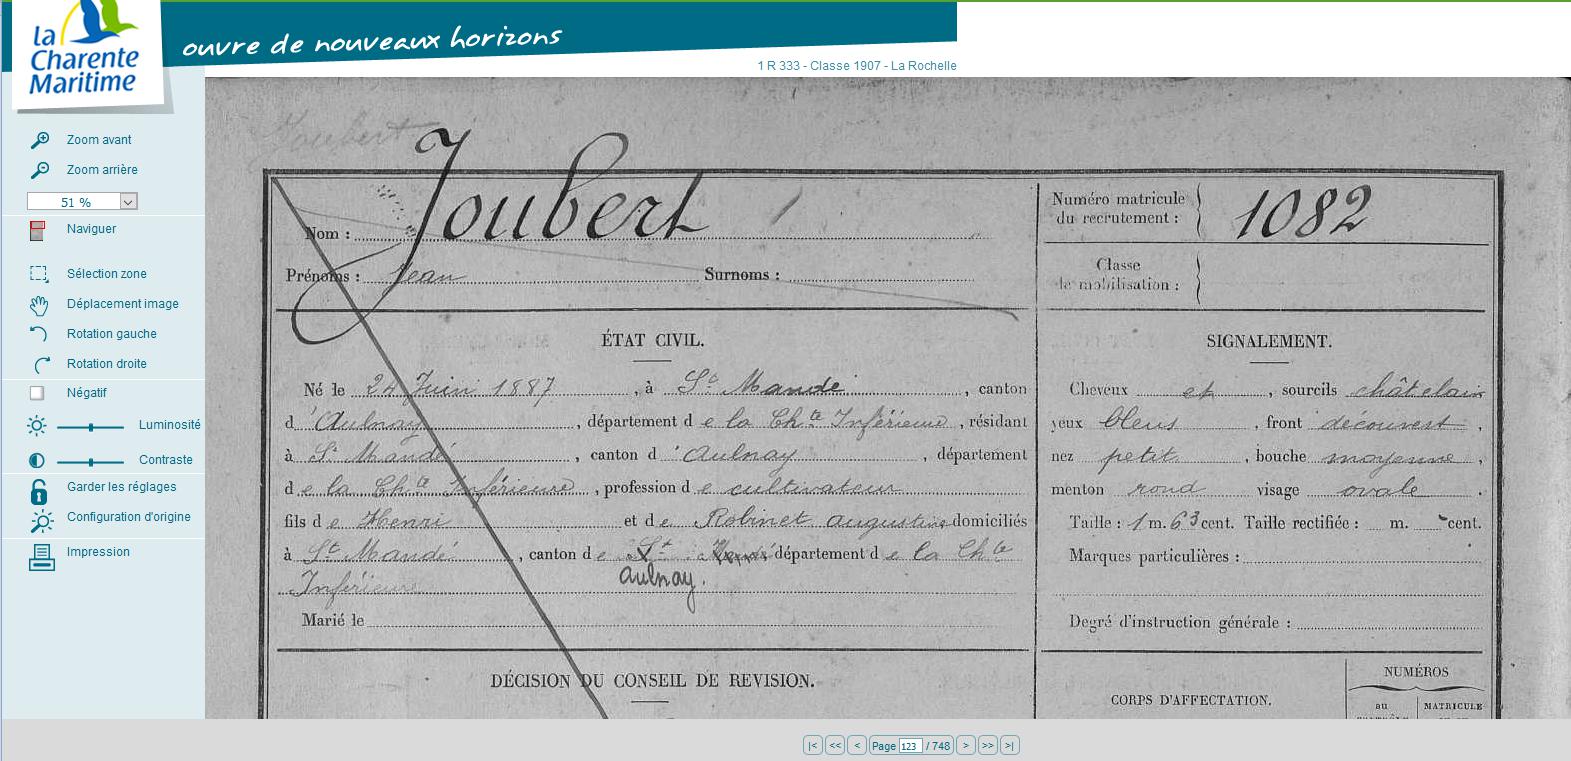 la
Charente
Maritime
ouvre de nouveaux horizons
1 R 333 - Classe 1907 - La Rochelle
Zoom avant
Zoom arrière
51 %
Naviguer
Sélection zone
Déplacement image
Rotation gauche
Rotation droite
Négatif
Luminosité
Contraste
Garder les réglages
Configuration d'origine
Impression
Joubert
Nom : Joubert
Prénoms : Jean Surnoms :
Numéro matricule
du recrutement : 1082
Classe
de mobilisation :
ÉTAT CIVIL.
Né le 24 Juin 1887, à St Mandé, canton
d'Aulnay, département de la Chte Inférieure, résidant
à St Mandé, canton d'Aulnay, département
de la Chte Inférieure, profession de cultivateur
fils de Henri et de Robinet Augustine domiciliés
à St Mandé, canton de St département de la Chte
Aulnay.
Inférieure
Marié le
DÉCISION DU CONSEIL DE REVISION.
SIGNALEMENT.
Cheveux et, sourcils châtelain
yeux bleus, front découvert,
nez petit, bouche moyenne,
menton rond visage ovale.
Taille : 1 m. 63 cent. Taille rectifiée : m. cent.
Marques particulières :
Degré d'instruction générale :
CORPS D'AFFECTATION.
NUMÉROS
au MATRICULE
|< << < Page 123 / 748 > >> >|